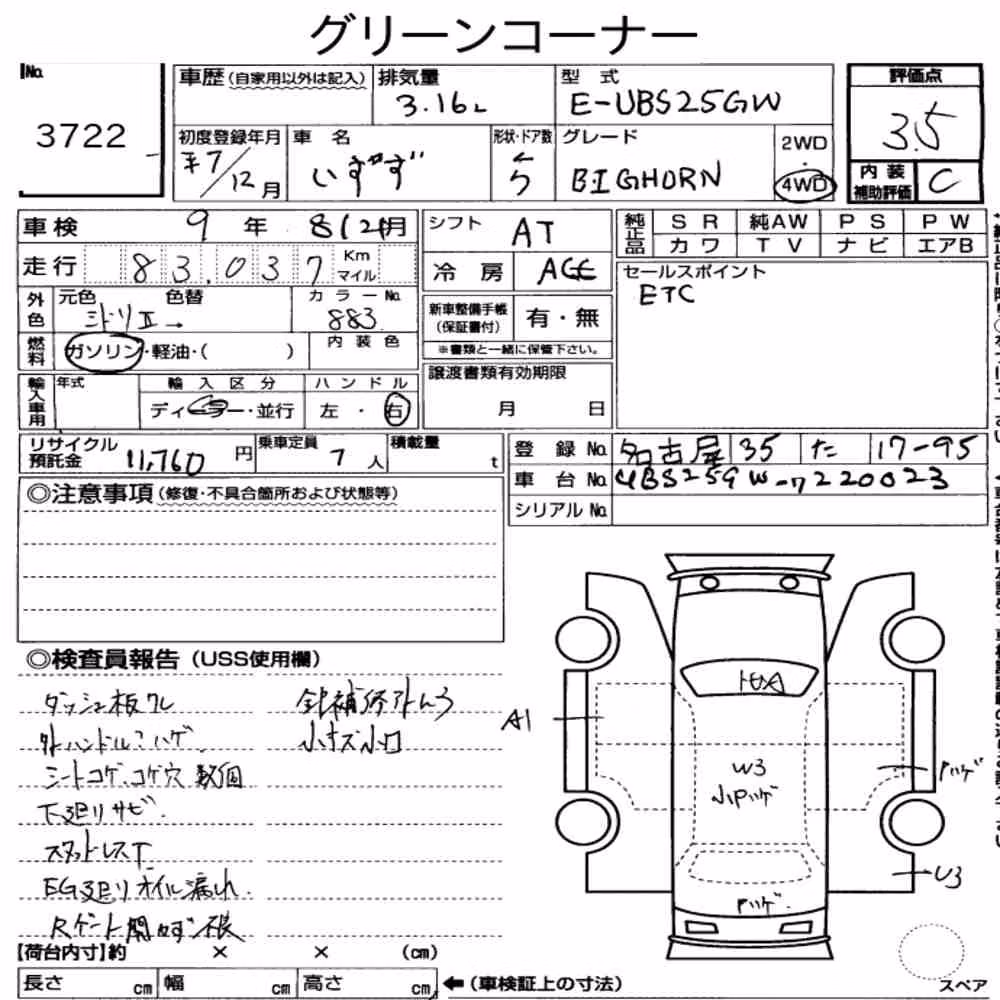 グリーンコーナー
No.
3722
車歴(自家用以外は記入)
排気量
3.16L
型 式
E-UBS25GW
評価点
3.5
初度登録年月
平7/12月
車 名
いすゞ
形状・ドア数
5
グレード
BIGHORN
2WD
・
4WD
内 装
補助評価
C
車検
9 年 8(21)月
走行
83,037
Km
マイル
外色
元色
色替
ミドリⅡ→
カラーNo.
883
燃料
ガソリン・軽油・( )
内 装 色
輸入車用
年式
輸 入 区 分
ディーラー・並行
ハ ン ド ル
左 ・ 右
シフト
AT
冷 房
新車整備手帳
(保証書付)
有・無
※書類と一緒に保管下さい。
譲渡書類有効期限
月 日
純正品
S R
純AW
P S
P W
カワ
T V
ナ ビ
エアB
セールスポイント
ETC
リサイクル
預託金
11,760円
乗車定員
7人
積載量
t
登 録 No.
名古屋 35 た 17-95
車 台 No.
UBS25GW-7220023
シリアル No.
◎注意事項(修復・不具合箇所および状態等)
◎検査員報告(USS使用欄)
ダッシュ板ワレ
外ハンドル ハゲ
シートコゲ、コゲ穴 数個
下廻りサビ
スタットレスT
EG廻りオイル漏れ
Rゲート開
小キズ小凹
A1
W3
小Pハゲ
Pハゲ
U3
Pハゲ
【荷台内寸】約 × × (cm)
長さ cm
幅 cm
高さ cm
←(車検証上の寸法)
スペア